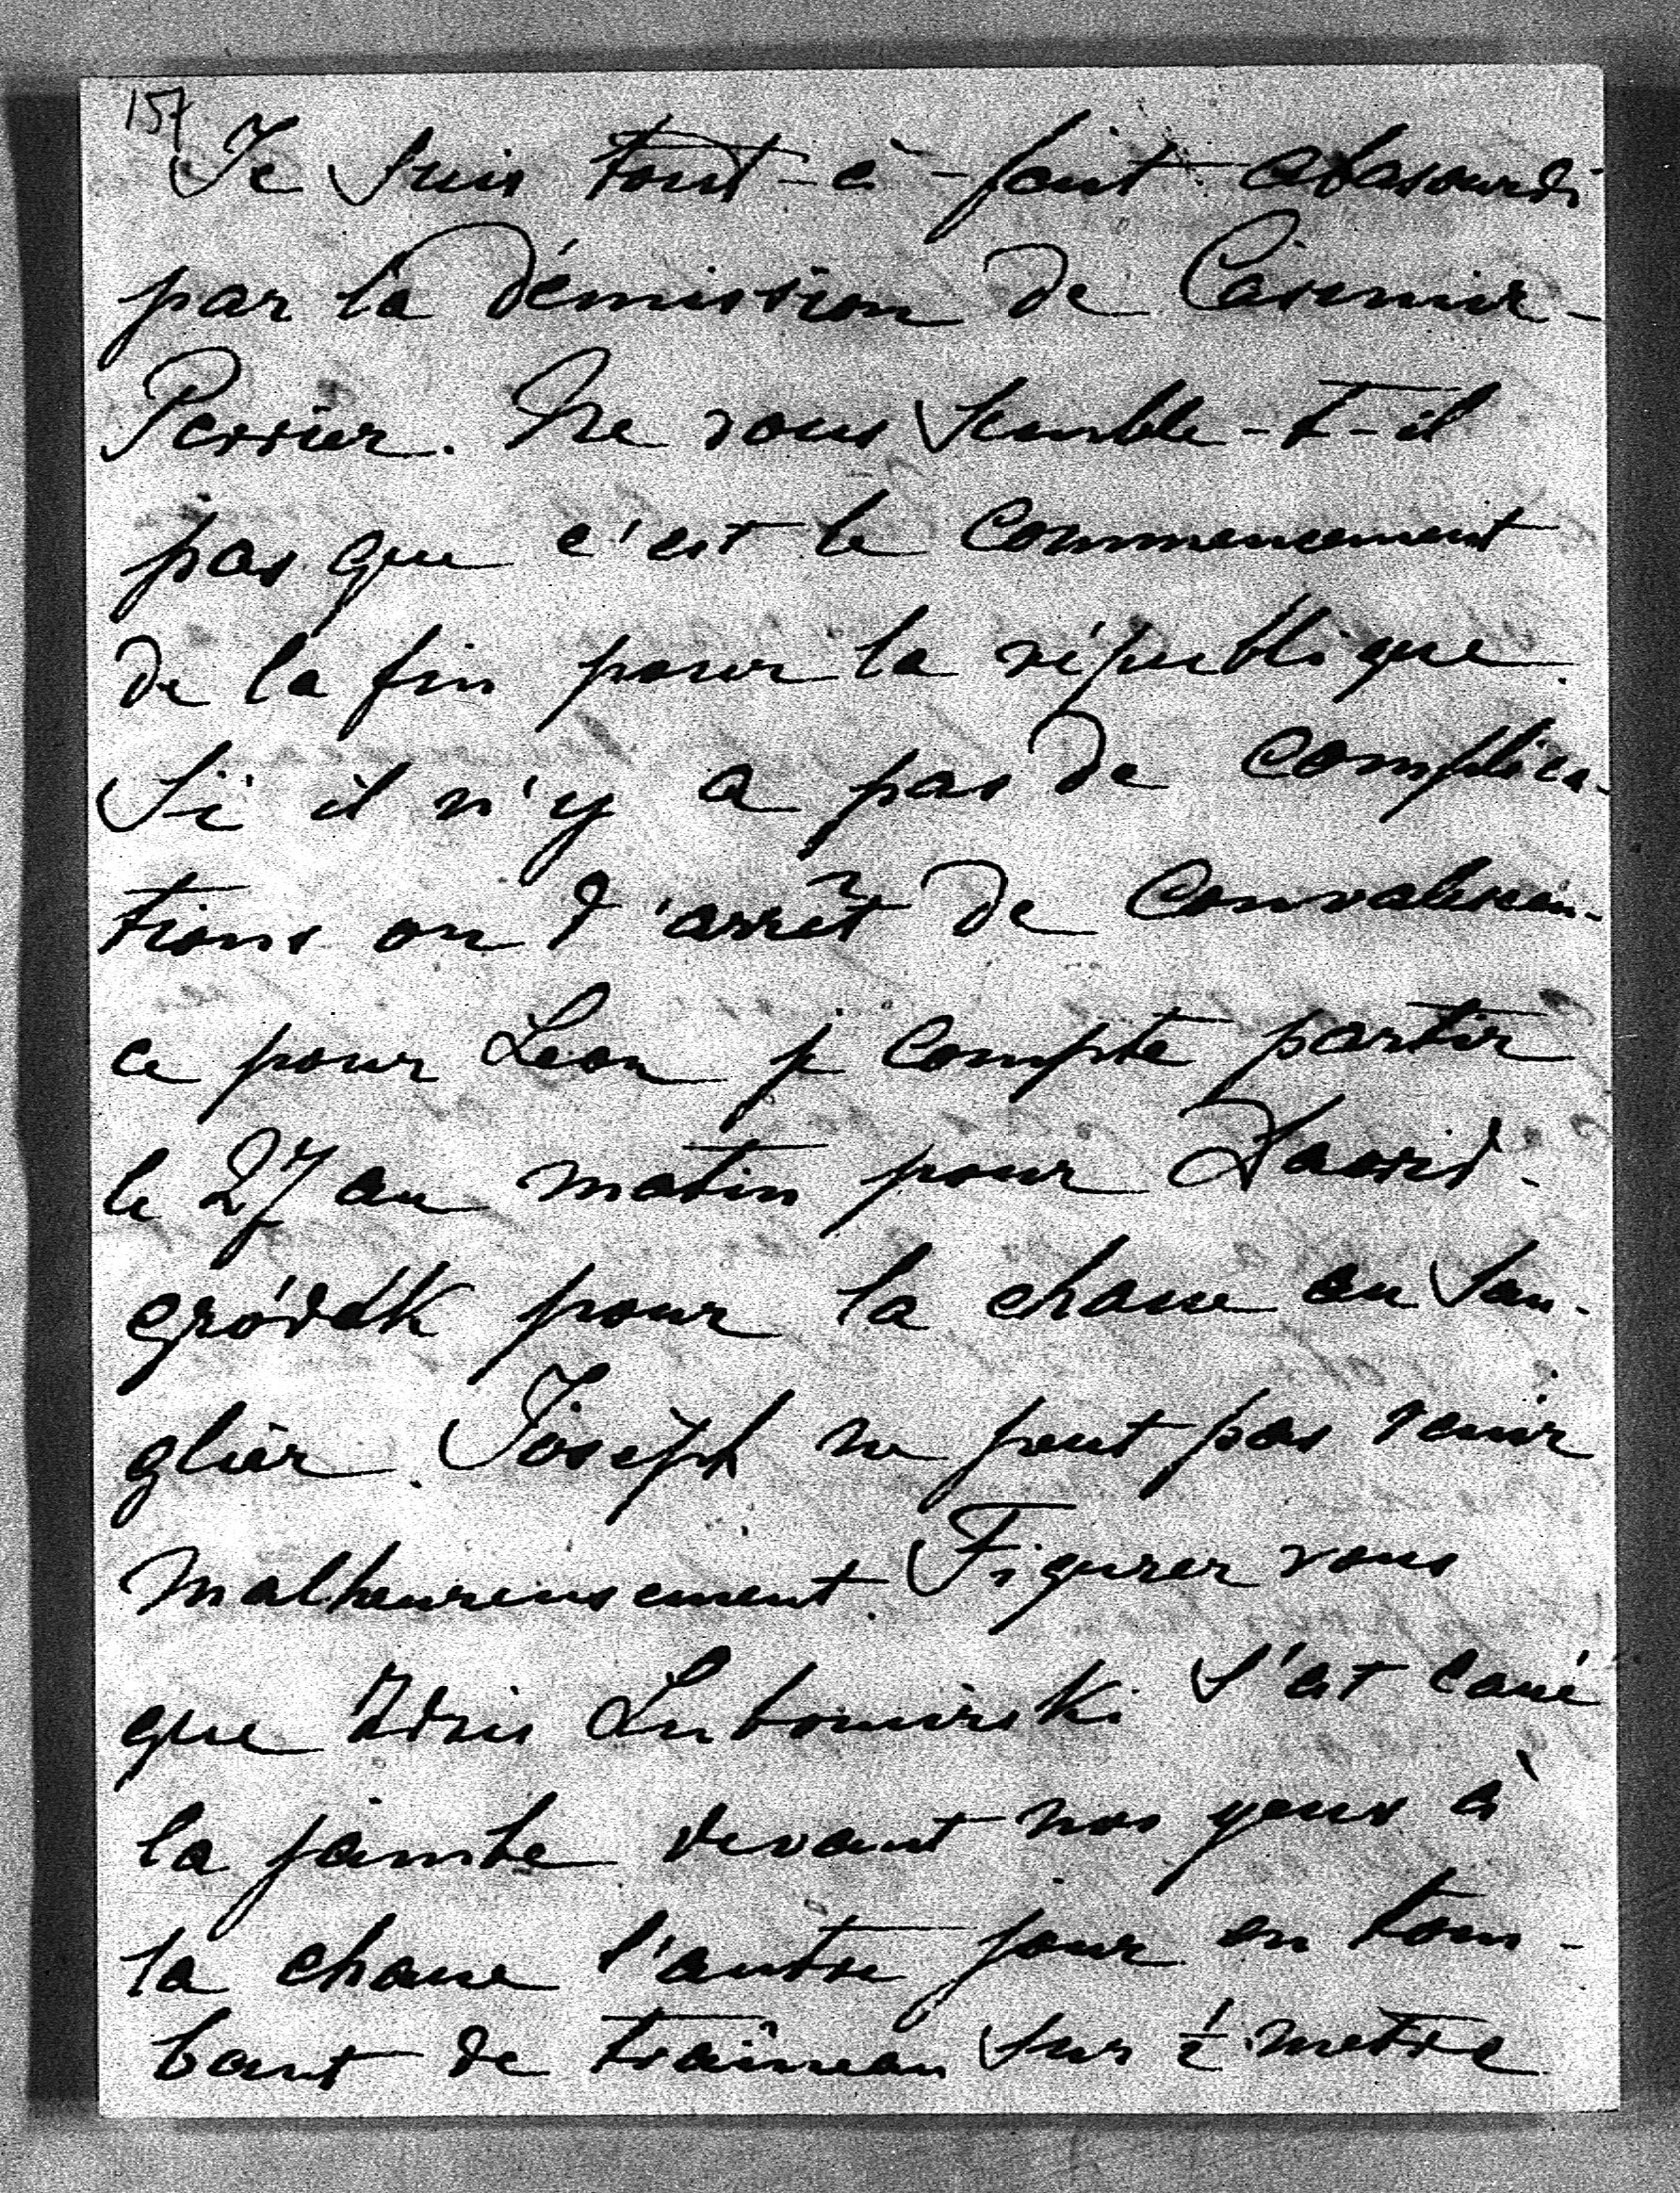 157
Je suis tout-à-fait abasourdi
par la démission de Casimir-
Perrier. Ne vous semble-t-il
pas que c'est le commencement
de la fin pour la république.
Si il n'y a pas de complica-
tions ou d'arrêt de convalescen-
ce pour Leon je compte partir
le 27 au matin pour Dawid-
gródek pour la chasse au san-
glier. Joseph ne peut pas venir
malheureusement. Figurer vous
que Zdzis Lubomirski s'est cassé
la jambe devant nos yeux à
la chasse l'autre jour en tom-
bant de traîneau sur ½ metre